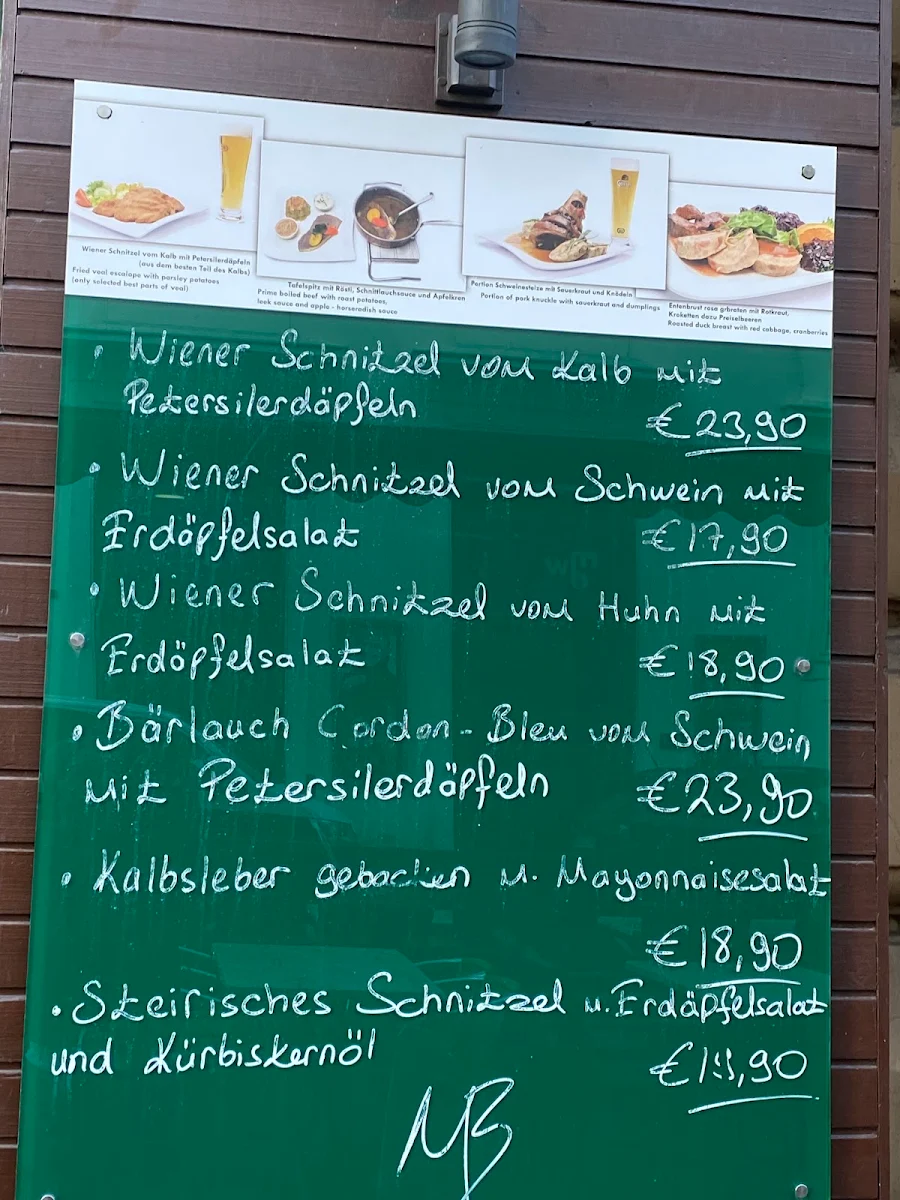 Wiener Schnitzel vom Kalb mit Petersilerdäpfeln
(aus dem besten Teil des Kalbs)
Fried veal escalope with parsley potatoes
(only selected best parts of veal)
Tafelspitz mit Rösti, Schnittlauchsauce und Apfelkren
Prime boiled beef with roast potatoes,
leek sauce and apple - horseradish sauce
Portion Schweinsstelze mit Sauerkraut und Knödeln
Portion of pork knuckle with sauerkraut and dumplings
Entenbrust rosa gebraten mit Rotkraut,
Kroketten dazu Preiselbeeren
Roasted duck breast with red cabbage, cranberries
• Wiener Schnitzel vom Kalb mit
Petersilerdäpfeln € 23,90
• Wiener Schnitzel vom Schwein mit
Erdöpfelsalat € 17,90
• Wiener Schnitzel vom Huhn mit
Erdöpfelsalat € 18,90
• Bärlauch Cordon-Bleu vom Schwein
mit Petersilerdäpfeln € 23,90
• Kalbsleber gebacken m. Mayonnaisesalat
€ 18,90
• Steirisches Schnitzel m. Erdäpfelsalat
und Kürbiskernöl
MB